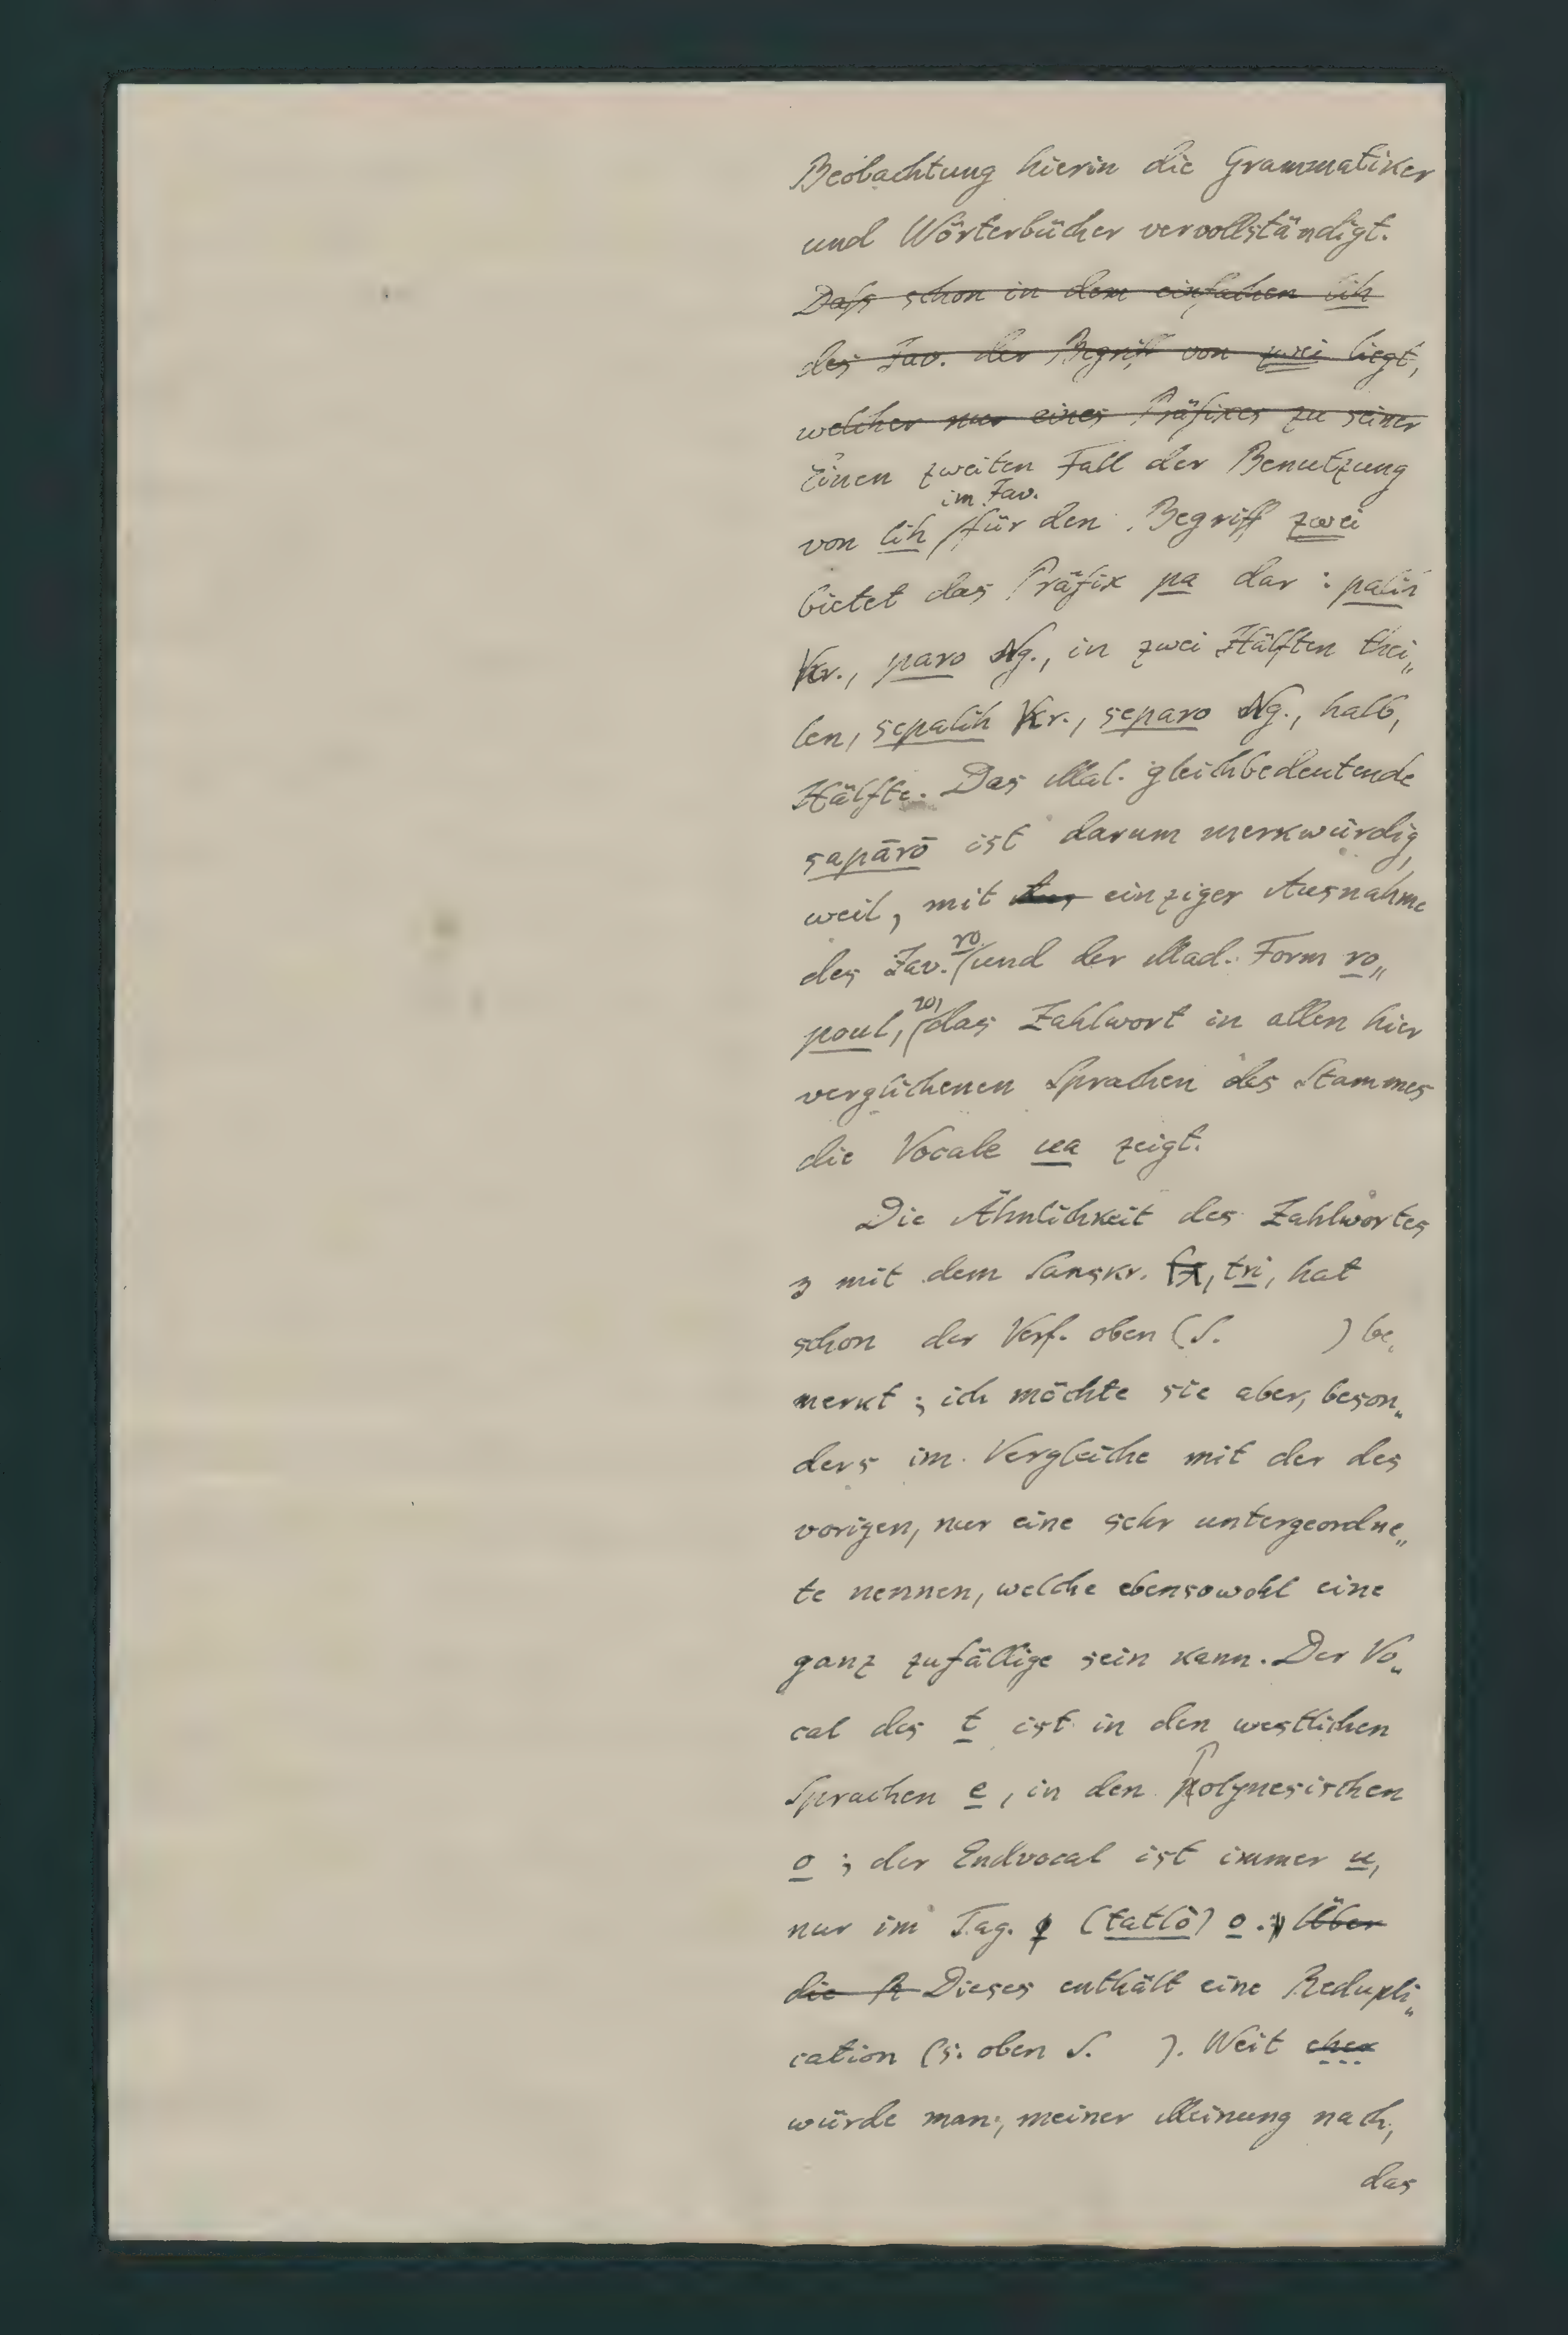 Beobachtung hierin die Grammatiker
und Wörterbücher vervollständigt.
Daſs schon in dem einfachen lih
des Jav. der Begriff von zwei liegt,
welcher nur eines Präfixes zu seiner
Einen zweiten Fall der Benutzung
im Jav.
von lih für den Begriff zwei
bietet das Präfix pa dar: palih
Kr., paro Ng., in zwei Hälften thei„
len, sepalih Kr., separo Ng., halb,
Hälfte. Das Mal. gleichbedeutende
sapārō ist darum merkwürdig,
weil, mit einziger Ausnahme
des Jav. ro und der Mad. Form ro„
poul, das Zahlwort in allen hier
verglichenen Sprachen des Stammes
die Vocale ua zeigt.
Die Ähnlichkeit des Zahlwortes
3 mit dem Sanskr. त्रि, tri, hat
schon der Verf. oben (S. ) be„
merkt; ich möchte sie aber, beson„
ders im Vergleiche mit der des
vorigen, nur eine sehr untergeordne„
te nennen, welche ebensowohl eine
ganz zufällige sein kann. Der Vo„
cal des t ist in den westlichen
Sprachen e, in den Polynesischen
o; der Endvocal ist immer u,
nur im Tag. (tatlò) o. Über
die R Dieses enthält eine Redupli„
cation (s. oben S. ). Weit eher
würde man, meiner Meinung nach,
das